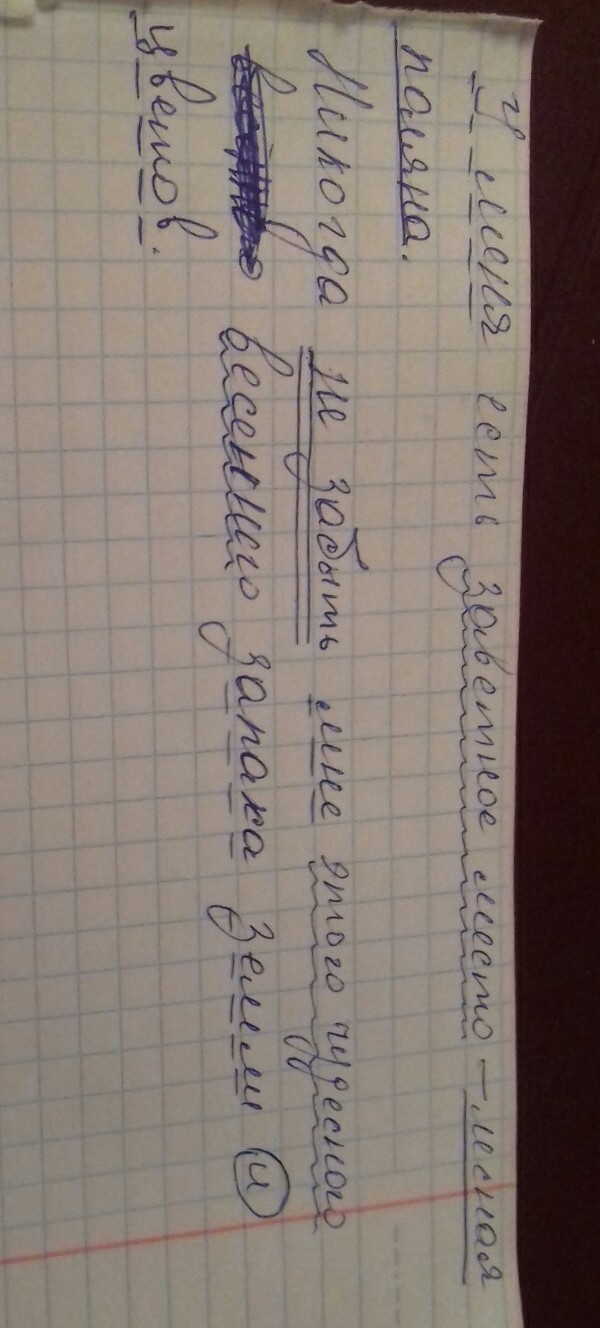 У меня есть заветное место - лесная
поляна.
Никогда не забыть мне этого чудесного
весеннего запаха земли и
цветов.